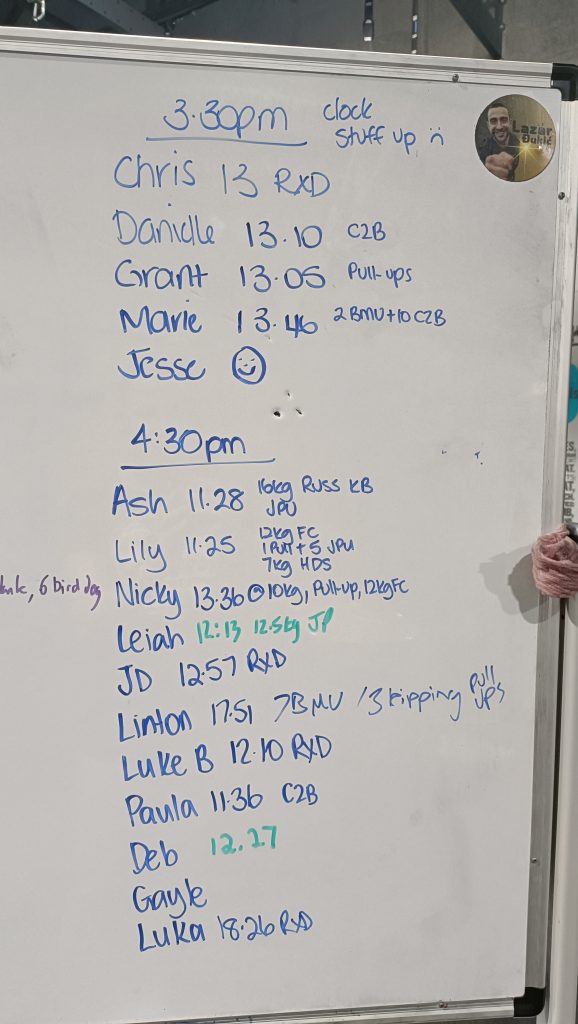 3.30pm clock
stuff up
Lazar
Đukić
Chris 13 RXD
Danielle 13.10 C2B
Grant 13.05 Pull-ups
Marie 13.46 2 BMU + 10 C2B
Jesse
4:30pm
Ash 11.28 16kg Russ KB
JPU
Lily 11.25 12kg FC
1 Pull + 5 JPU
7kg HDS
6 bird dog
Nicky 13.36 @ 10kg, Pull-up, 12kg FC
Leiah 12:13 12.5kg JP
JD 12.57 RXD
Linton 17.51 7BMU /3 kipping pull
ups
Luke B 12.10 RXD
Paula 11.36 C2B
Deb 12.27
Gayle
Luka 18.26 RXD